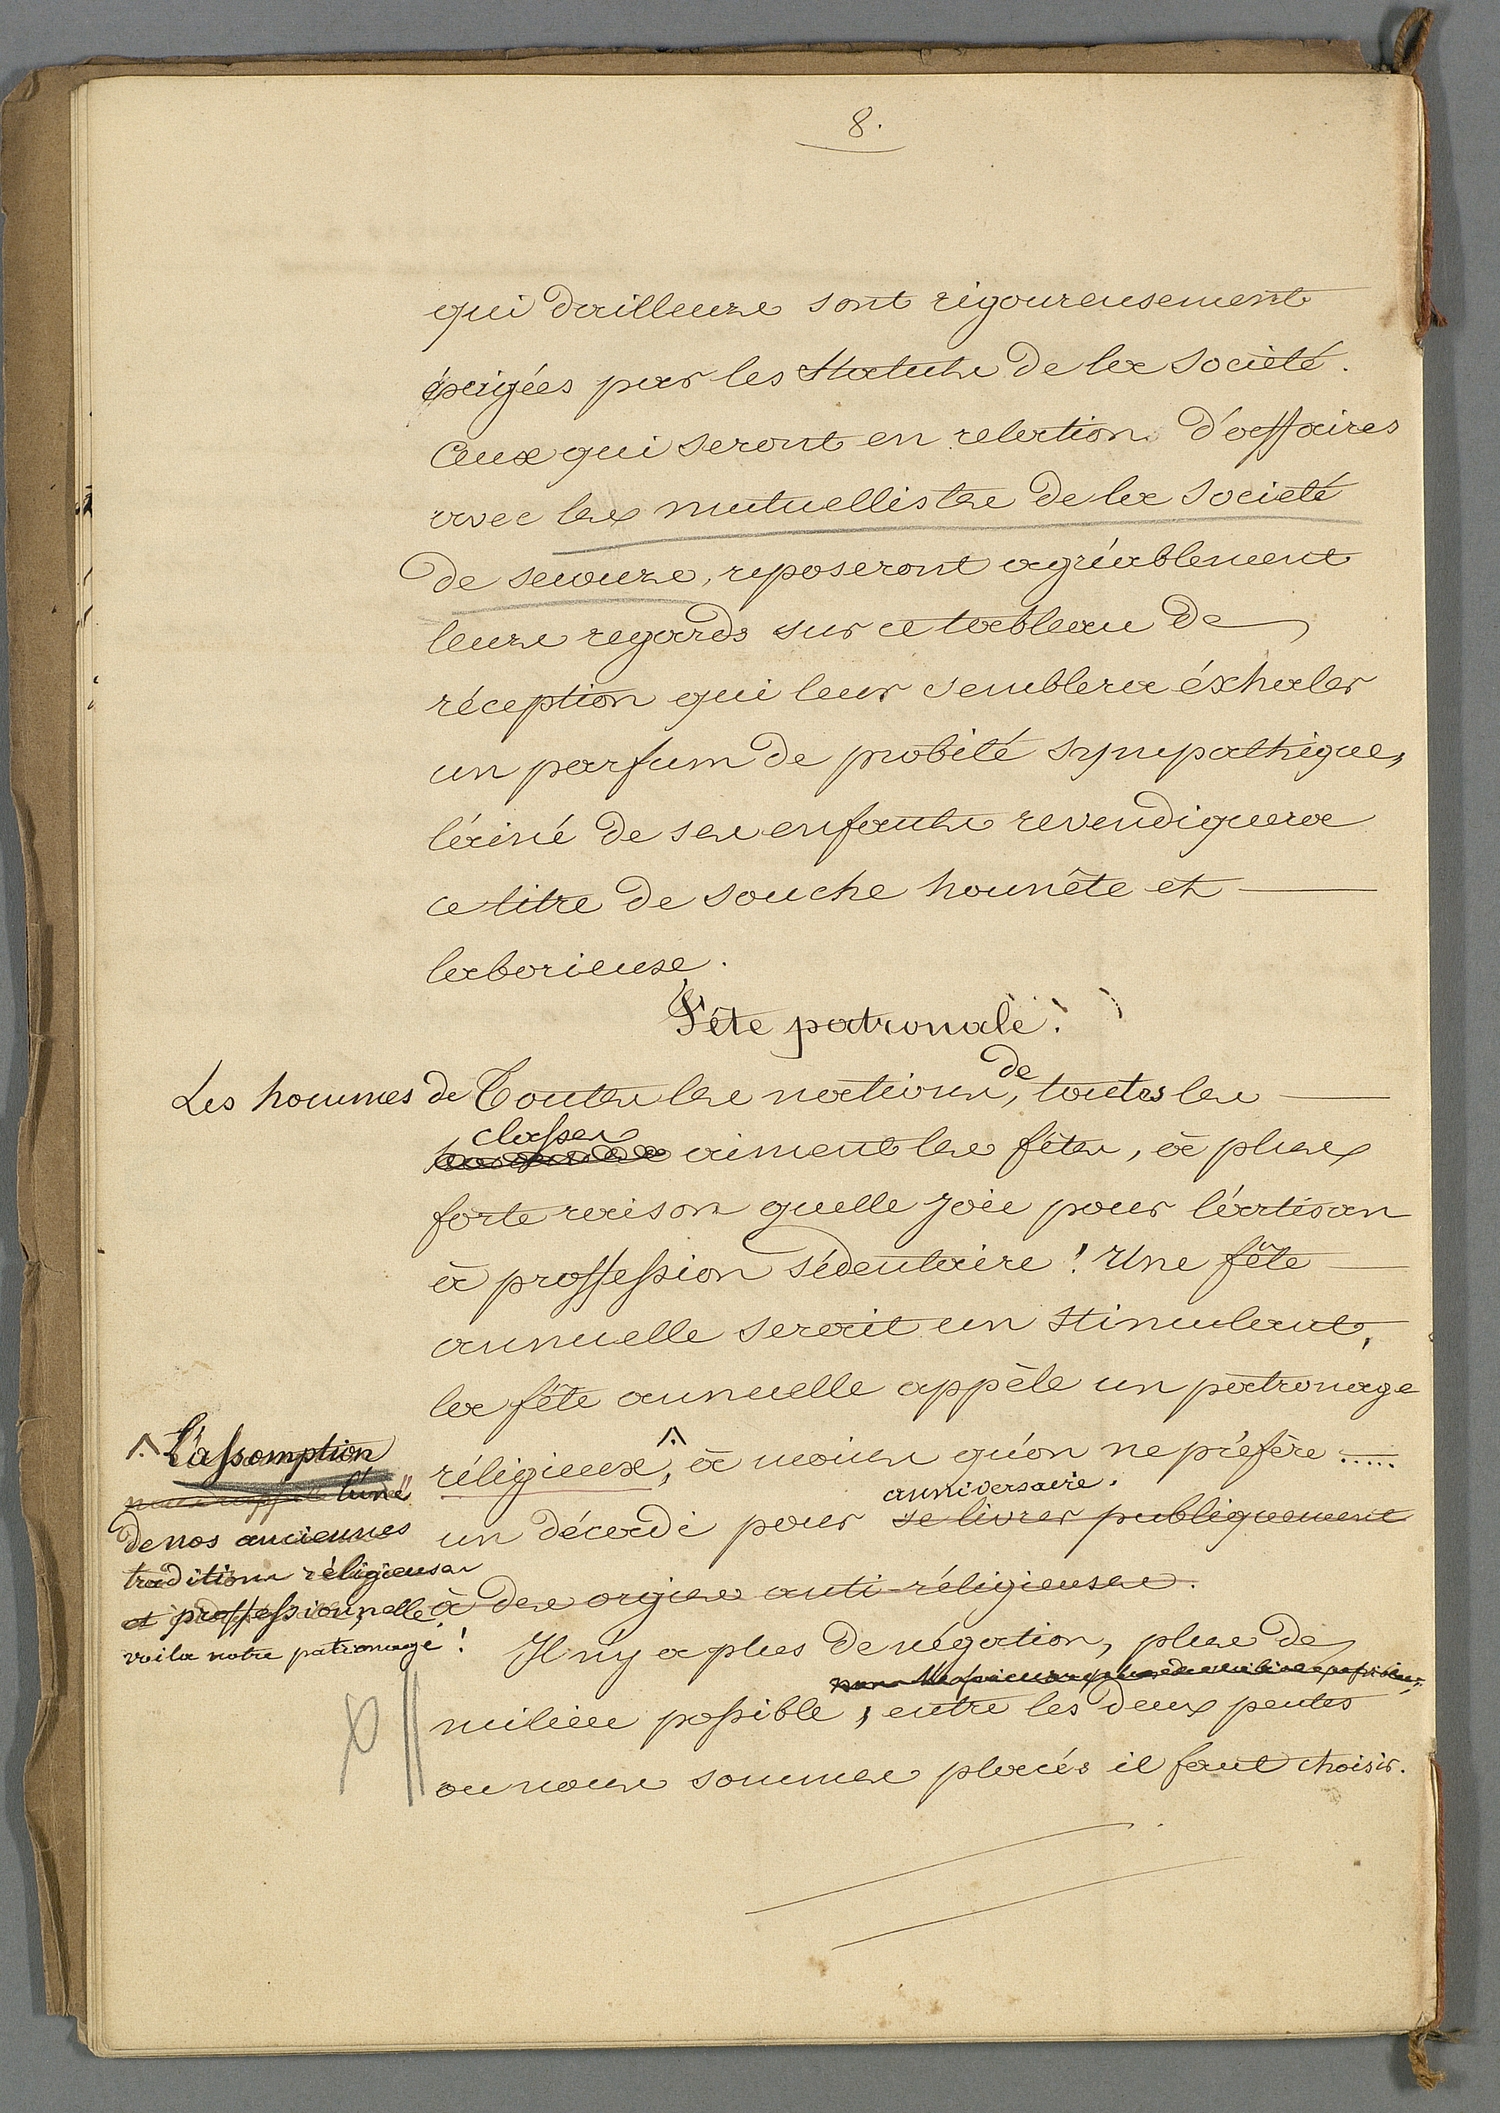 8.
qui dailleurs sont rigoureusement
éxigées par les Statuts de la Société.
Ceux qui seront en relation d'affaires
avec les mutuellistes de la Société
de secours, reposeront agréablement
leurs regards sur ce tableau de
réception qui leur semblera éxhaler
un parfum de probité sympathique,
l'ainé de ses enfants revendiquera
ce titre de souche hounête et
laborieuse.
Fête patronale.
Les hommes de Toutes les nations, de toutes les
classes aiment les fêtes, à plus
forte raison quelle joie pour l'artisan
à proffession sédentaire ! Une fête
annuelle serait un stimulant,
la fête annuelle appèle un patronage
réligieux, ^ à moins qu'on ne préfère .....
anniversaire.
un décadi pour se livrer publiquement
à des orgies anti-réligieuses.
^ L'assomption
l'une
de nos anciennes
traditions réligieuses
et proffessionnelle,
voila notre patronage !
Il n'y a plus de négation, plus de
milieu possible, entre les deux pentes
ou nous sommes placés il faut choisir.